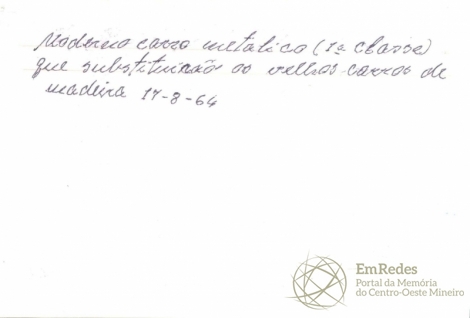 Moderno carro metalico (1ª classe)
que substituirão os velhos carros de
madeira 17-8-64
EmRedes
Portal da Memória
do Centro-Oeste Mineiro